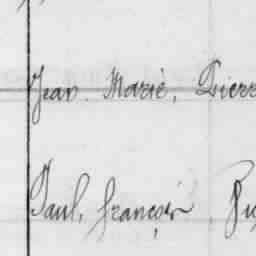 Jean. Marie, Pierr
Paul, françois,